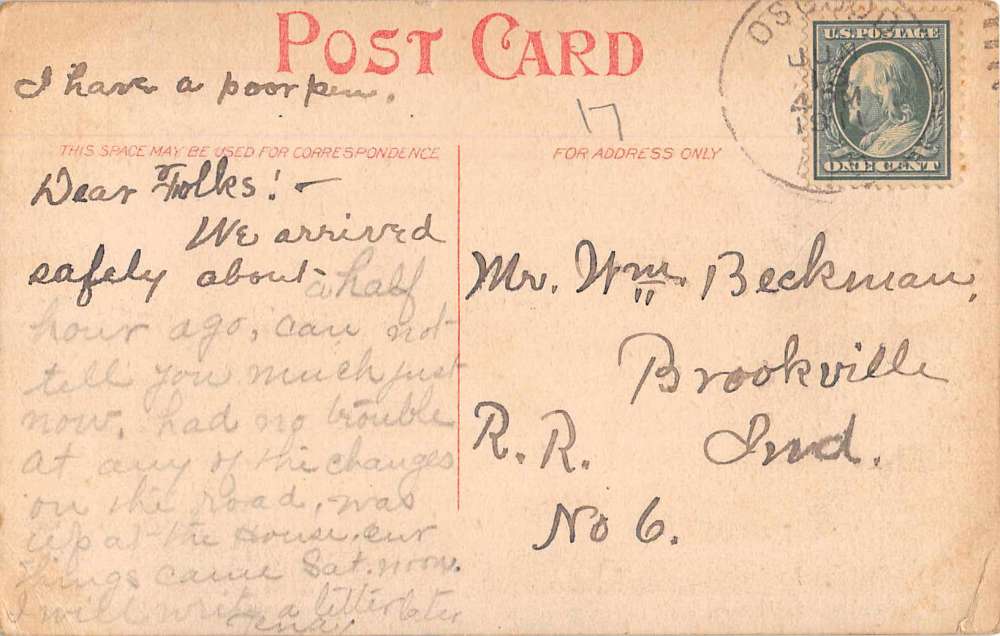 POST CARD
I have a poor pen.
17
THIS SPACE MAY BE USED FOR CORRESPONDENCE
FOR ADDRESS ONLY
OSGOOD
U.S. POSTAGE
ONE CENT
Dear Folks! —
We arrived
safely about a half
hour ago, can not
tell you much just
now, had no trouble
at any of the changes
on the road, was
up at the House. our
things came Sat. noon.
I will write a letter later
Mr. Wm. Beckman,
Brookville
R. R. Ind.
No 6.